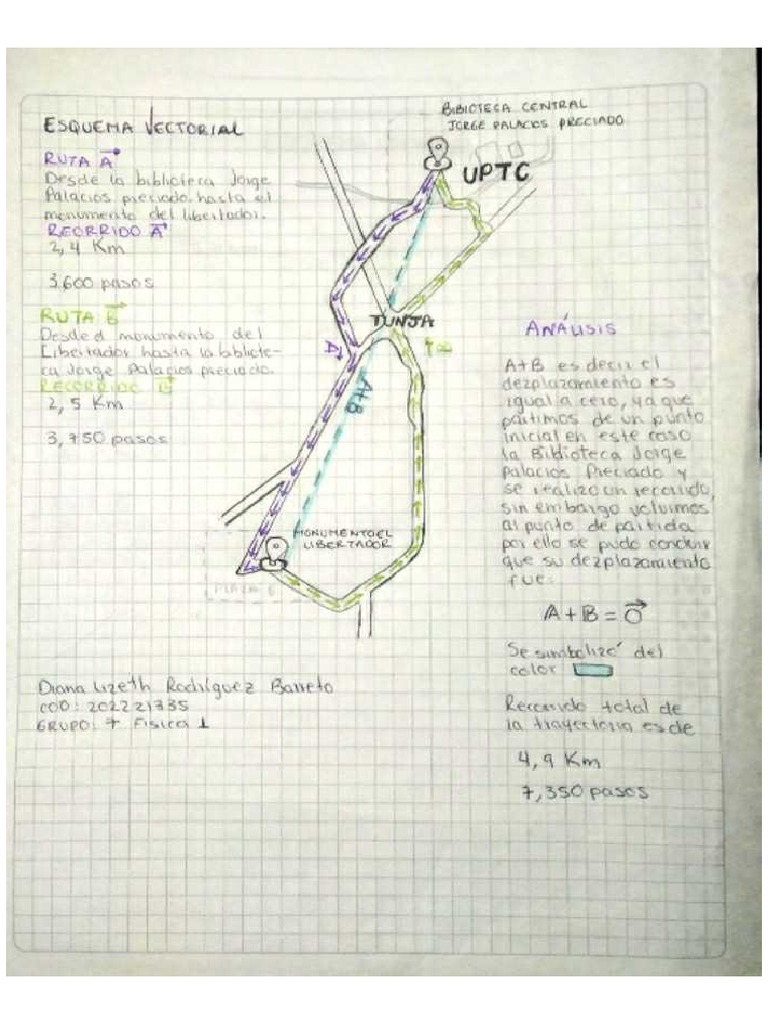 ESQUEMA VECTORIAL
RUTA A
Desde la biblioteca Jorge
Palacios preciado hasta el
monumento del libertador.
RECORRIDO A
2,4 Km
3,600 pasos
RUTA B
Desde el monumento del
Libertador hasta la bibliote-
ca Jorge Palacios preciado.
RECORRIDO B
2,5 Km
3,750 pasos
BIBIOTECA CENTRAL
JORGE PALACIOS PRECIADO
UPTC
TUNJA
A
A+B
MONUMENTO EL
LIBERTADOR
ANÁLISIS
A+B es decir el
dezplazamiento es
igual a cero, ya que
partimos de un punto
inicial en este caso
la Biblioteca Jorge
Palacios Preciado y
se realizo un recorrido,
sin embargo volvimos
al punto de partida
por ello se pudo concluir
que su dezplazamiento
fue:
A + B = O
Se simbolizó del
color
Recorrido total de
la trayectoria es de
4,9 Km
7,350 pasos
Diana Lizeth Rodríguez Barreto
COD: 202221335
GRUPO: 7 Física 1